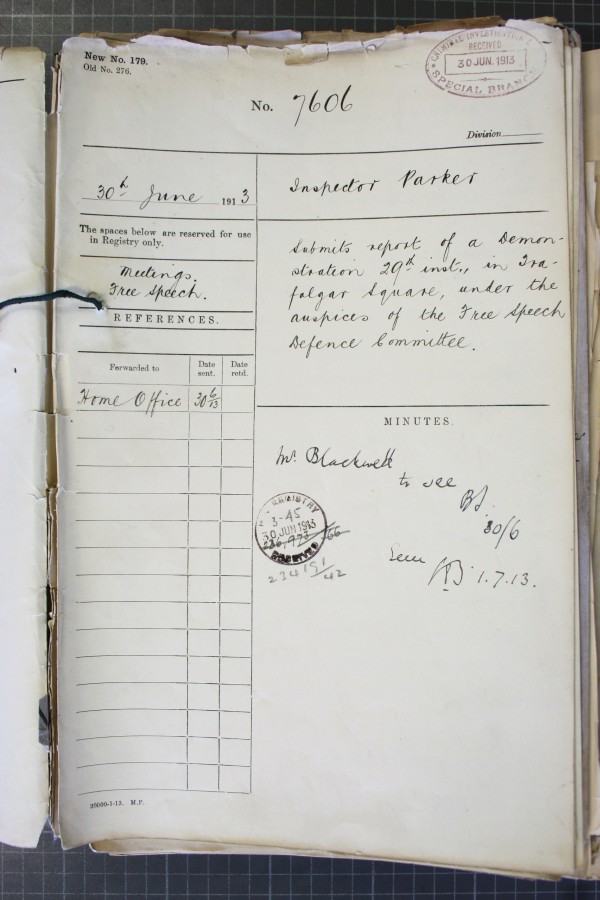 New No. 179.
Old No. 276.
CRIMINAL INVESTIGATION
RECEIVED
30 JUN. 1913
SPECIAL BRANCH
No. 7606
Division
30th June 1913
Inspector Parker
The spaces below are reserved for use
in Registry only.
Meetings.
Free Speech.
REFERENCES.
Submits report of a Demon-
stration 29th inst., in Tra-
falgar Square, under the
auspices of the Free Speech
Defence Committee.
Forwarded to
Date sent.
Date retd.
Home Office
30/6/13
MINUTES.
Mr. Blackwell
to see
30/6
REGISTRY
3-45
30 JUN 1913
RECEIVED
234191/42
Seen
1.7.13.
20000-1-13. M.P.